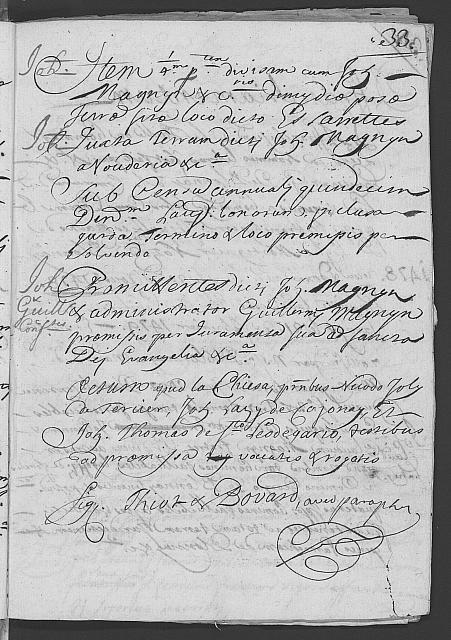 33.
Joh. Item 1/4m p.tem divisim cum Joh.
Magnyn &c.a dimydiæ posæ
Terræ sitæ loco dicto Es
Joh. Juxta Terram dicti Joh. Magnyn
a &c.a
Sub Censu annuali quindecim
Den.m Laus. bonorum, inclusa
garda Termino & loco premissis per
solvendo
Joh. Promittentes dicti Joh. Magnyn
& administrator Guillermi Magnyn
premissis per Juramenta sua ad sancta
Dei Evangelia &c.a
Actum apud la Chiesa, pntibus Nicodo Joly
de Tercier, Joh. de Et
Joh. Thomas de Sto Leodegario, testibus
ad præmissa vocatis & rogatis
Sig. Thiot & Bovard, avec paraphe